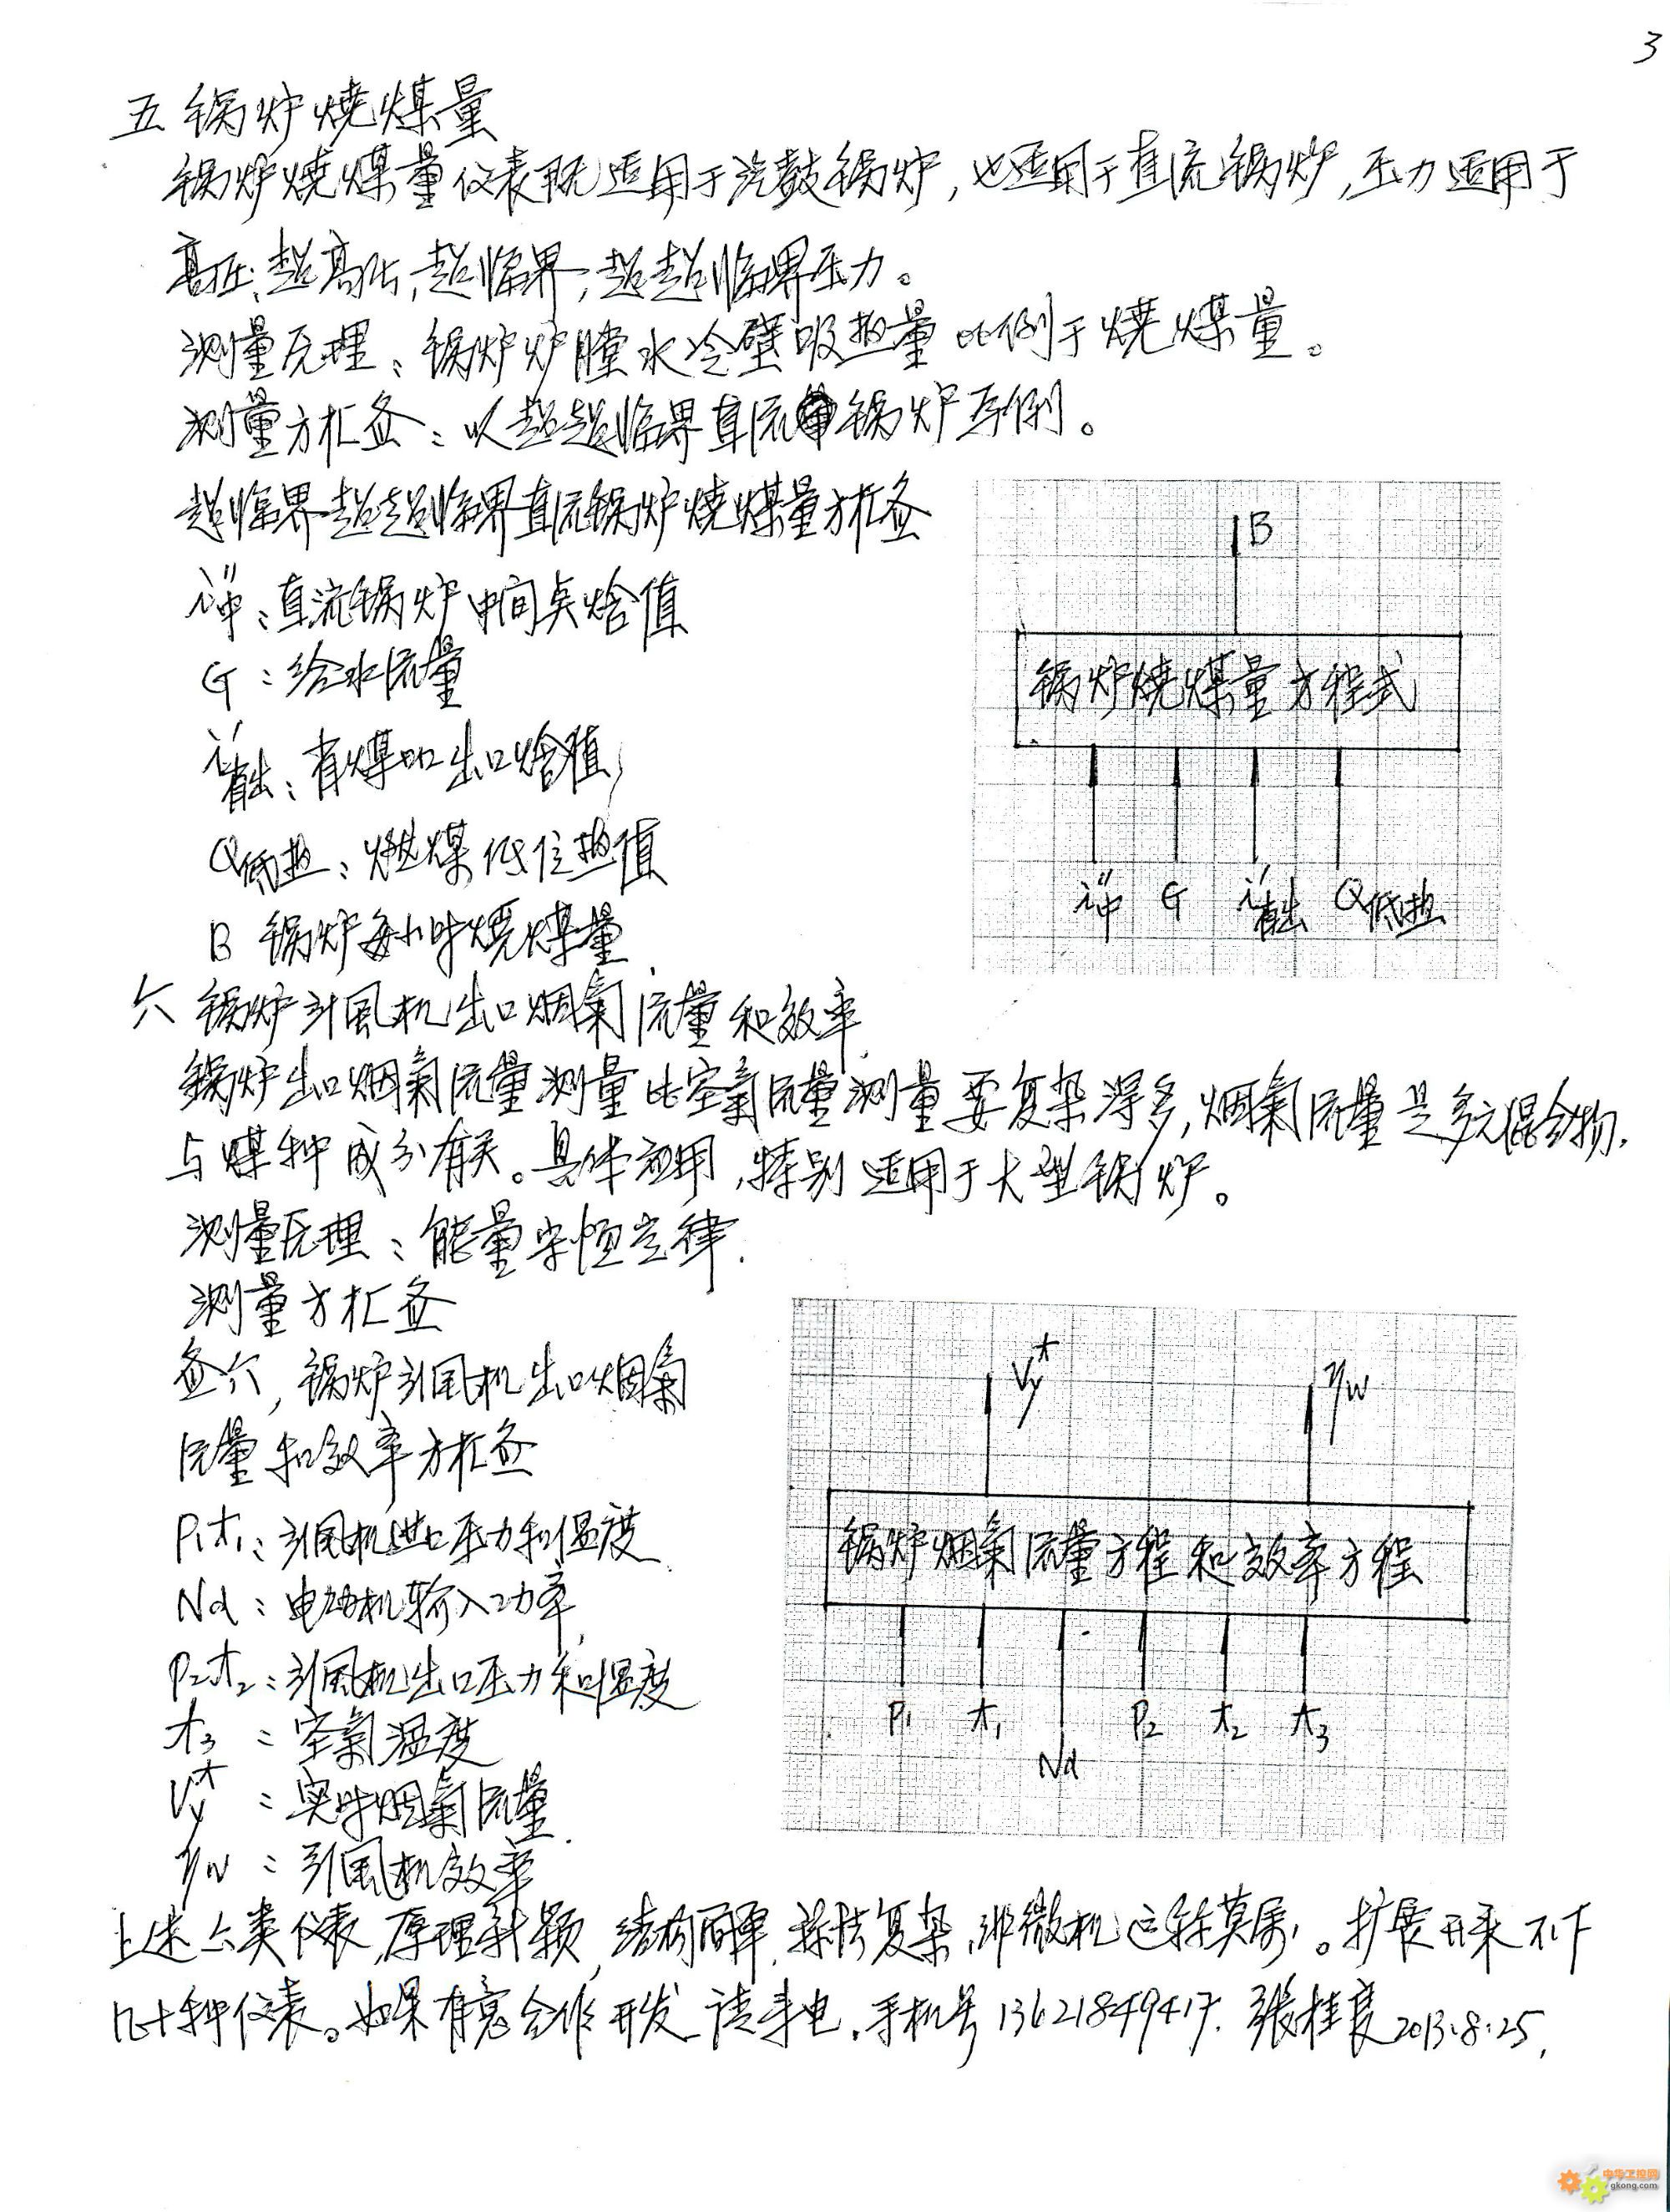 3
五 锅炉燒煤量
锅炉燒煤量仪表既适用于汽鼓锅炉,也适用于直流锅炉,压力适用于
高压,超高压,超临界,超超临界压力。
测量原理:锅炉炉膛水冷壁吸热量比例于燒煤量。
测量方框图:以超超临界直流锅炉为例。
超临界超超临界直流锅炉燒煤量方框图
i"中:直流锅炉中间点焓值
G:给水流量
i'省出:省煤口出口焓值
Q低热:燃煤低位热值
B 锅炉每小时燒煤量
B
锅炉燒煤量方程式
i"中 G i'省出 Q低热
六 锅炉引風机出口烟氣流量和效率
锅炉出口烟氣流量测量比空氣流量测量要复杂得多,烟氣流量是多元混合物,
与煤种成分有关。具体应用,特别适用于大型锅炉。
测量原理:能量守恒定律.
测量方框图
图六,锅炉引風机出口烟氣
流量和效率方框图
P₁t₁:引風机进口压力和温度
Nd:电动机输入功率
P₂t₂:引風机出口压力和温度
t₃:空氣温度
Vy^t:实时烟氣流量
ηw:引風机效率
Vy^t ηw
锅炉烟氣流量方程和效率方程
P₁ t₁ P₂ t₂ t₃
Nd
上述六类仪表,原理新颖,结构简单,算法复杂,非微机运转莫属。扩展开来不下
几十种仪表。如果有意合作开发请来电.手机号13621849417. 張桂良2013.8.25,
中华工控网
gkong.com